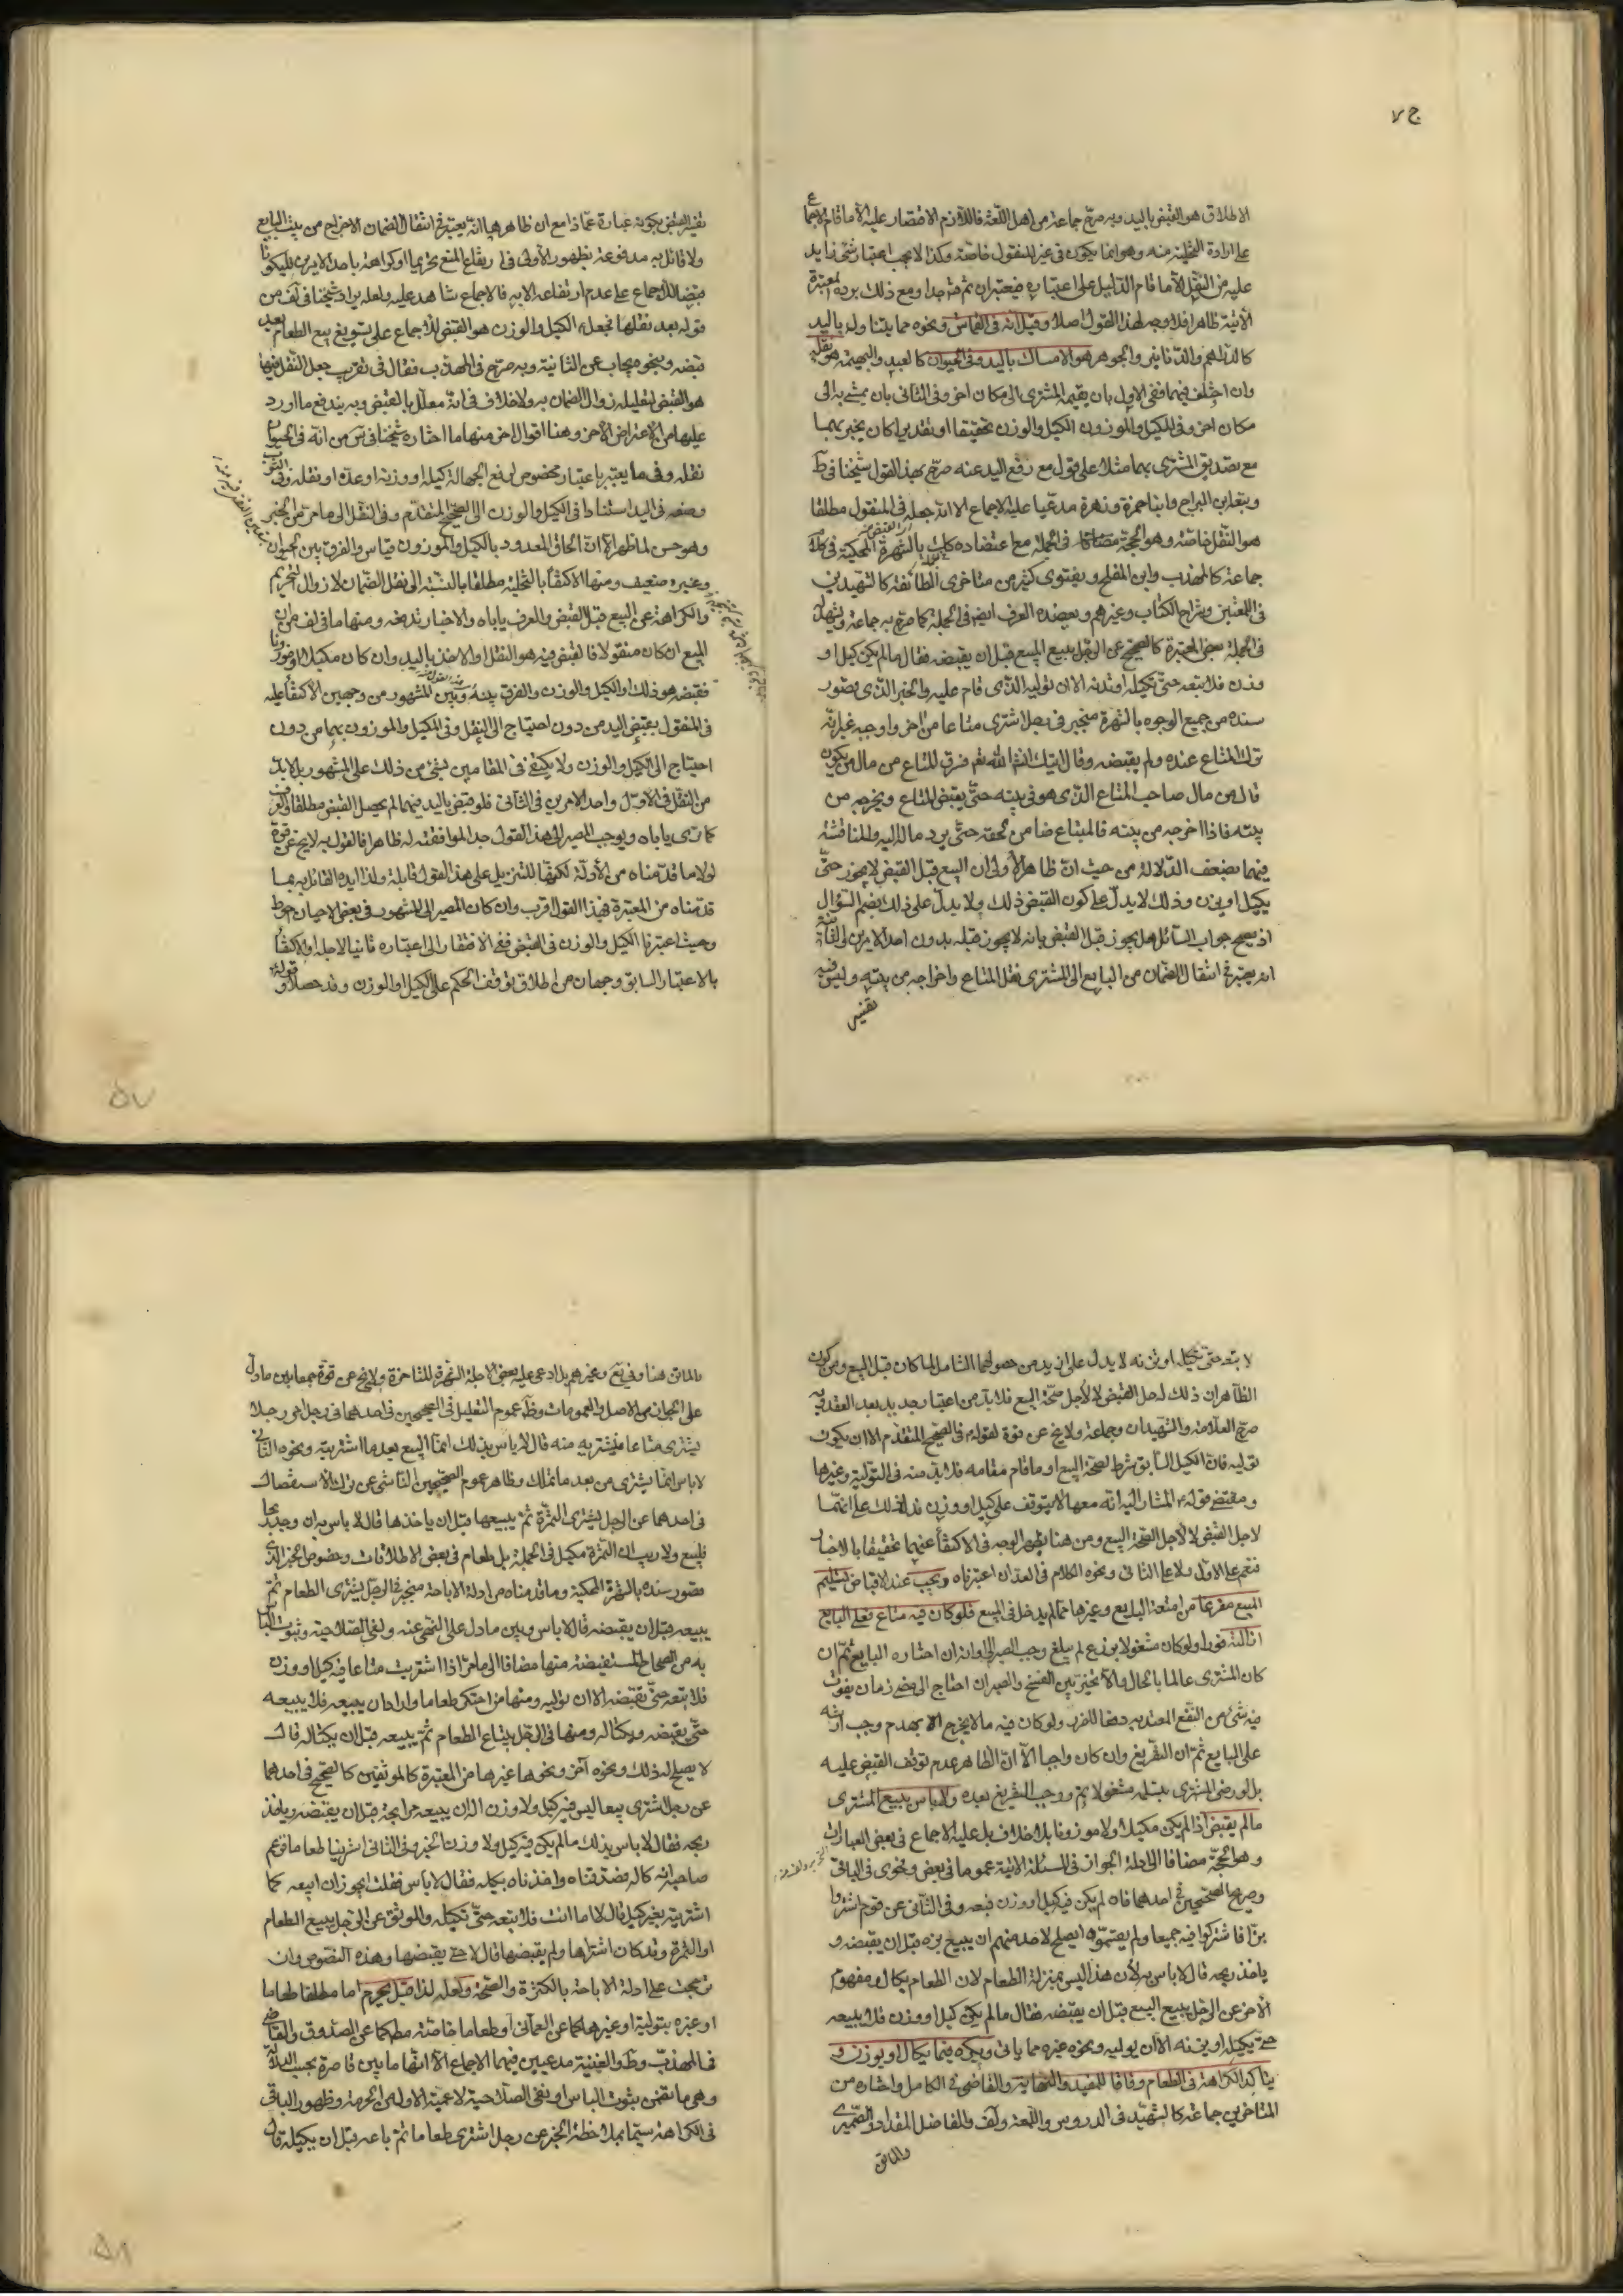 الاطلاق هو القبض باليد وبه صرح جماعة من اهل اللغة فاللازم الاقتصار عليه الا ما قام الاجماع
على ارادة التخلية منه وهو انما يكون في غير المنقول خاصة وكذا لا يجب اعتبار شئ زايد
عليه من النقل الا ما قام الدليل على اعتباره فيعتبران ثمة جدا ومع ذلك يرده المعتبرة
الاتية ظاهرا فلا وجه لهذا القول اصلا وقيل انه في القماش ونحوه مما يتناوله باليد
كالدراهم والدنانير والجوهر هو الامساك باليد وفي الحيوان كالعبد والبهيمة هو نقله
وان اختلف فيهما ففي الاول بان يقيم المشتري الى مكان اخر وفي الثاني بان يمشي به الى
مكان اخر وفي المكيل والموزون الكيل والوزن تحقيقا او تقديرا كان يخبر بهما
مع تصديق المشتري بهما مثلا على قول مع رفع اليد عنه صرح بهذا القول شيخنا في ط
وتبعه ابن البراج وابنا حمزة وزهرة مدعيا عليه الاجماع الا انه جعله في المنقول مطلقا
هو النقل خاصة وهو الحجة مضافا في الجملة مع اعتضاده بالشهرة المحكية في كلام
جماعة كالمهذب وابن المفلح وبفتوى كثير من متاخري الطائفة كالشهيدين
في اللمعتين وشراح الكتاب وغيرهم ويعضده العرف ايضا في الجملة كما صرح به جماعة ويشهد له
في الجملة بعض المعتبرة كالصحيح عن الرجل يبيع المبيع قبل ان يقبضه فقال ما لم يكن كيل او
وزن فلا تبعه حتى تكيله او تزنه الا ان توليه الذي قام عليه والخبر الذي قصور
سنده من جميع الوجوه بالشهرة منجبر في رجل اشترى متاعا من اخر واوجبه غير انه
ترك المتاع عنده ولم يقبضه وقال اتيك انشا الله ثم سرق المتاع من مال من يكون
قال من مال صاحب المتاع الذي هو في بيته حتى يقبض المتاع ويخرجه من
بيته فاذا اخرجه من بيته فالمبتاع ضامن لحقه حتى يرد ماله اليه والمناقشة
فيهما بضعف الدلالة من حيث ان ظاهر الاولى ان البيع قبل القبض لا يجوز حتى
يكيل او يزن وذلك لا يدل على كون القبض ذلك ولا يدل على ذلك بضم السؤال
اذ يصح جواب السائل هل يجوز قبل القبض بانه لا يجوز قبله بدون احد الامرين والثانية
انه يعتبر في انتقال الضمان من البايع الى المشتري نقل المتاع واخراجه من بيته وليس فيه
تفسير
تفسير القبض بكونه عبارة عما ذا مع ان ظاهرها انه يعتبر في انتقال الضمان الاخراج من بيت البايع
ولا قائل به مدفوعة بظهور الاولى في ارتفاع المنع تحريما او كراهة باحد الامرين فليكونا
قبضا للاجماع على عدم ارتفاعه الا به فالاجماع شاهد عليه ولعله يراد شيخنا في لف من
قوله بعد نقلها فجعل الكيل والوزن هو القبض للاجماع على تسويغ بيع الطعام بعد
قبضه وبنحوه يجاب عن الثانية وبه صرح في المهذب فقال في تقريب جعل النقل فيها
هو القبض لتعليله زوال الضمان به ولا خلاف في انه معلل بالقبض وبه يندفع ما اورد
عليهما من الاعتراض الاخر وهنا اقوال اخر منها ما اختاره شيخنا في س من انه في الحيوان
نقله وفي ما يعتبر باعتبار مخصوص لدفع الجهالة كيله او وزنه او عده او نقله وفي الثوب
وضعه في اليد استنادا في الكيل والوزن الى الصحيح المتقدم وفي النقل الى ما مر من الخبر
وهو حسن لما ظهر الا ان الحاق المعدود بالكيل والموزون قياس والفرق بين الحيوان
وغيره ضعيف ومنها الاكتفاء بالتخلية مطلقا بالنسبة الى نقل الضمان لا زوال التحريم
والكراهة عن البيع قبل القبض والعرف ياباه والاخبار تدفعه ومنها ما في لف من ان
المبيع ان كان منقولا فالقبض فيه هو النقل والاخذ باليد وان كان مكيلا او موزونا
فقبضه هو ذلك او الكيل والوزن والفرق بينه وبين المشهور من وجهين الاكتفاء عليه
في المنقول بقبض اليد من دون احتياج الى النقل وفي المكيل والموزون بهما من دون
احتياج الى الكيل والوزن ولا يكتفى في المقامين بشئ من ذلك على المشهور بل لا بد
من النقل في الاول واحد الامرين في الثاني فلو قبض باليد فيهما لم يحصل القبض مطلقا والعرف
كما ترى ياباه ويوجب المصير الى هذا القول جدا لموافقته له ظاهرا فالقول به لا يخ عن قوة
لولا ما قدمناه من الادلة لكونها للتنزيل على هذا القول قابلة ولذا ايده القائل به بما
قدمناه من المعتبرة فهذا القول اقرب وان كان المصير الى المشهور في بعض الاحيان احوط
وحيث اعتبرنا الكيل والوزن في القبض ففي الافتقار الى اعتباره ثانيا لاجله او الاكتفاء
بالاعتبار السابق وجهان من اطلاق توقف الحكم على الكيل او الوزن وقد حصلا وقوله
لا تبعه حتى تكيله او تزنه لا يدل على ازيد من حصولهما الشامل لما كان قبل البيع ومن كون
الظاهر ان ذلك لاجل القبض لا لاجل صحة البيع فلا بد من اعتبار جديد بعد العقد وبه
صرح العلامة والشهيدان وجماعة ولا يخ عن قوة لقوله في الصحيح المتقدم الا ان يكون
توليه فان الكيل السابق شرط لصحة البيع او ما قام مقامه فلا بد منه في التولية وغيرها
ومقتضى قوله المشار اليه انه معها لا يتوقف على كيل او وزن فدل ذلك على انهما
لاجل القبض لا لاجل صحة البيع ومن هنا يظهر الوجه في الاكتفاء عنهما تحقيقا بالاخبار
فنعم على الاول ولا على الثاني ونحوه الكلام في العد ان اعتبرناه ويجب عند الاقباض تسليم
المبيع مفرغا من امتعة البايع وغيرها مما لم يدخل في المبيع فلو كان فيه متاع فعلى البايع
ازالته فورا ولو كان مشغولا بزرع لم يبلغ وجب الصبر الى اوانه ان اختاره البايع ثم ان
كان المشتري عالما بالحال والا تخير بين الفسخ والصبر ان احتاج الى مضي زمان يفوت
فيه شئ من النفع المعتد به دفعا للضرر ولو كان فيه ما لا يخرج الا بهدم وجب ارشه
على البايع ثم ان التفريغ وان كان واجبا الا ان الظاهر عدم توقف القبض عليه
بل لو رضي المشتري بتسلمه مشغولا تم ووجب التفريغ بعده ولا باس ببيع المشتري
ما لم يقبض اذا لم يكن مكيلا ولا موزونا بلا خلاف بل عليه الاجماع في بعض العبارات
وهو الحجة مضافا الى ادلة الجواز في المسئلة الاتية عموما في بعض وفحوى في الباقي
وصريح الصحيحين في احدهما فان لم يكن فيه كيل او وزن فبعه وفي الثاني عن قوم اشتروا
بزا فاشتركوا فيه جميعا ولم يقتسموه ايصلح لاحد منهم ان يبيع بزه قبل ان يقبضه و
ياخذ ربحه قال لا باس به لان هذا ليس بمنزلة الطعام لان الطعام يكال ومفهوم
الاخر عن الرجل يبيع البيع قبل ان يقبضه فقال ما لم يكن كيل او وزن فلا يبيعه
حتى يكيله او يزنه الا ان يوليه ونحوه غيره مما ياتي ويكره فيما يكال او يوزن و
يتاكد الكراهة في الطعام وفاقا للمفيد والنهاية والقاضي في الكامل واختاره من
المتاخرين جماعة كالشهيد في الدروس واللمعة ولف والفاضل المقداد والصيمري
والماتن
والماتن هنا وفي يع وغيرهم بل ادعى عليه بعض الاجلة الشهرة المتاخرة ولا يخ عن قوة جمعا بين ما دل
على الجواز من الاصل والعمومات وظ عموم التعليل في الصحيحين في احدهما في رجل امر رجلا
يشتري متاعا فيشتريه منه قال لا باس بذلك انما البيع بعد ما اشتريته ونحوه الثاني
لا باس انما يشتري من بعد ما تملك وظاهر عموم الصحيحين الناشئ عن ترك الاستفصال
في احدهما عن الرجل يشتري الثمرة ثم يبيعها قبل ان ياخذها قال لا باس به ان وجد ربحا
فليبع ولا ريب ان الثمرة مكيل في الجملة بل طعام في بعض الاطلاقات وخصوص الخبر الذي
قصور سنده بالشهرة المحكية وما قدمناه من ادلة الاباحة منجبر في الرجل يشتري الطعام ثم
يبيعه قبل ان يقبضه قال لا باس وبين ما دل على النهي عنه ونفي الصلاحية وثبوت الباس
به من الصحاح المستفيضة منها مضافا الى ما مر اذا اشتريت متاعا فيه كيل او وزن
فلا تبعه حتى تقبضه الا ان توليه ومنها من احتكر طعاما واراد ان يبيعه فلا يبيعه
حتى يقبضه ويكتاله ومنها في الرجل يبتاع الطعام ثم يبيعه قبل ان يكتاله قال
لا يصلح له ذلك ونحوه آخر ونحوها غيرها من المعتبرة كالموثقين كالصحيح في احدهما
عن رجل اشترى بيعا ليس فيه كيل ولا وزن اله ان يبيعه مرابحة قبل ان يقبضه وياخذ
ربحه فقال لا باس بذلك ما لم يكن فيه كيل ولا وزن الخبر وفي الثاني اشترينا طعاما فزعم
صاحبه انه كاله فصدقناه واخذناه بكيله فقال لا باس فقلت ايجوز ان ابيعه كما
اشتريته بغير كيل قال لا اما انت فلا تبعه حتى تكيله والموثق عن الرجل يبيع الطعام
او الثمرة وقد كان اشتراها ولم يقبضها قال لا حتى يقبضها وهذه النصوص وان
ترجحت على ادلة الاباحة بالكثرة والصحة ولعله لذا قيل يحرم اما مطلقا طعاما
او غيره بتولية او غيرها كما عن العماني او طعاما خاصة مطلقا كما عن الصدوق والقاضي
في المهذب وط والغنية مدعيين فيهما الاجماع الا انها ما بين قاصرة بحسب الدلالة
وهي ما تضمن ثبوت الباس او نفي الصلاحية لاعمية الاولى من الحرمة وظهور الباقي
في الكراهة سيما بملاحظة الخبر عن رجل اشترى طعاما ثم باعه قبل ان يكيله قال